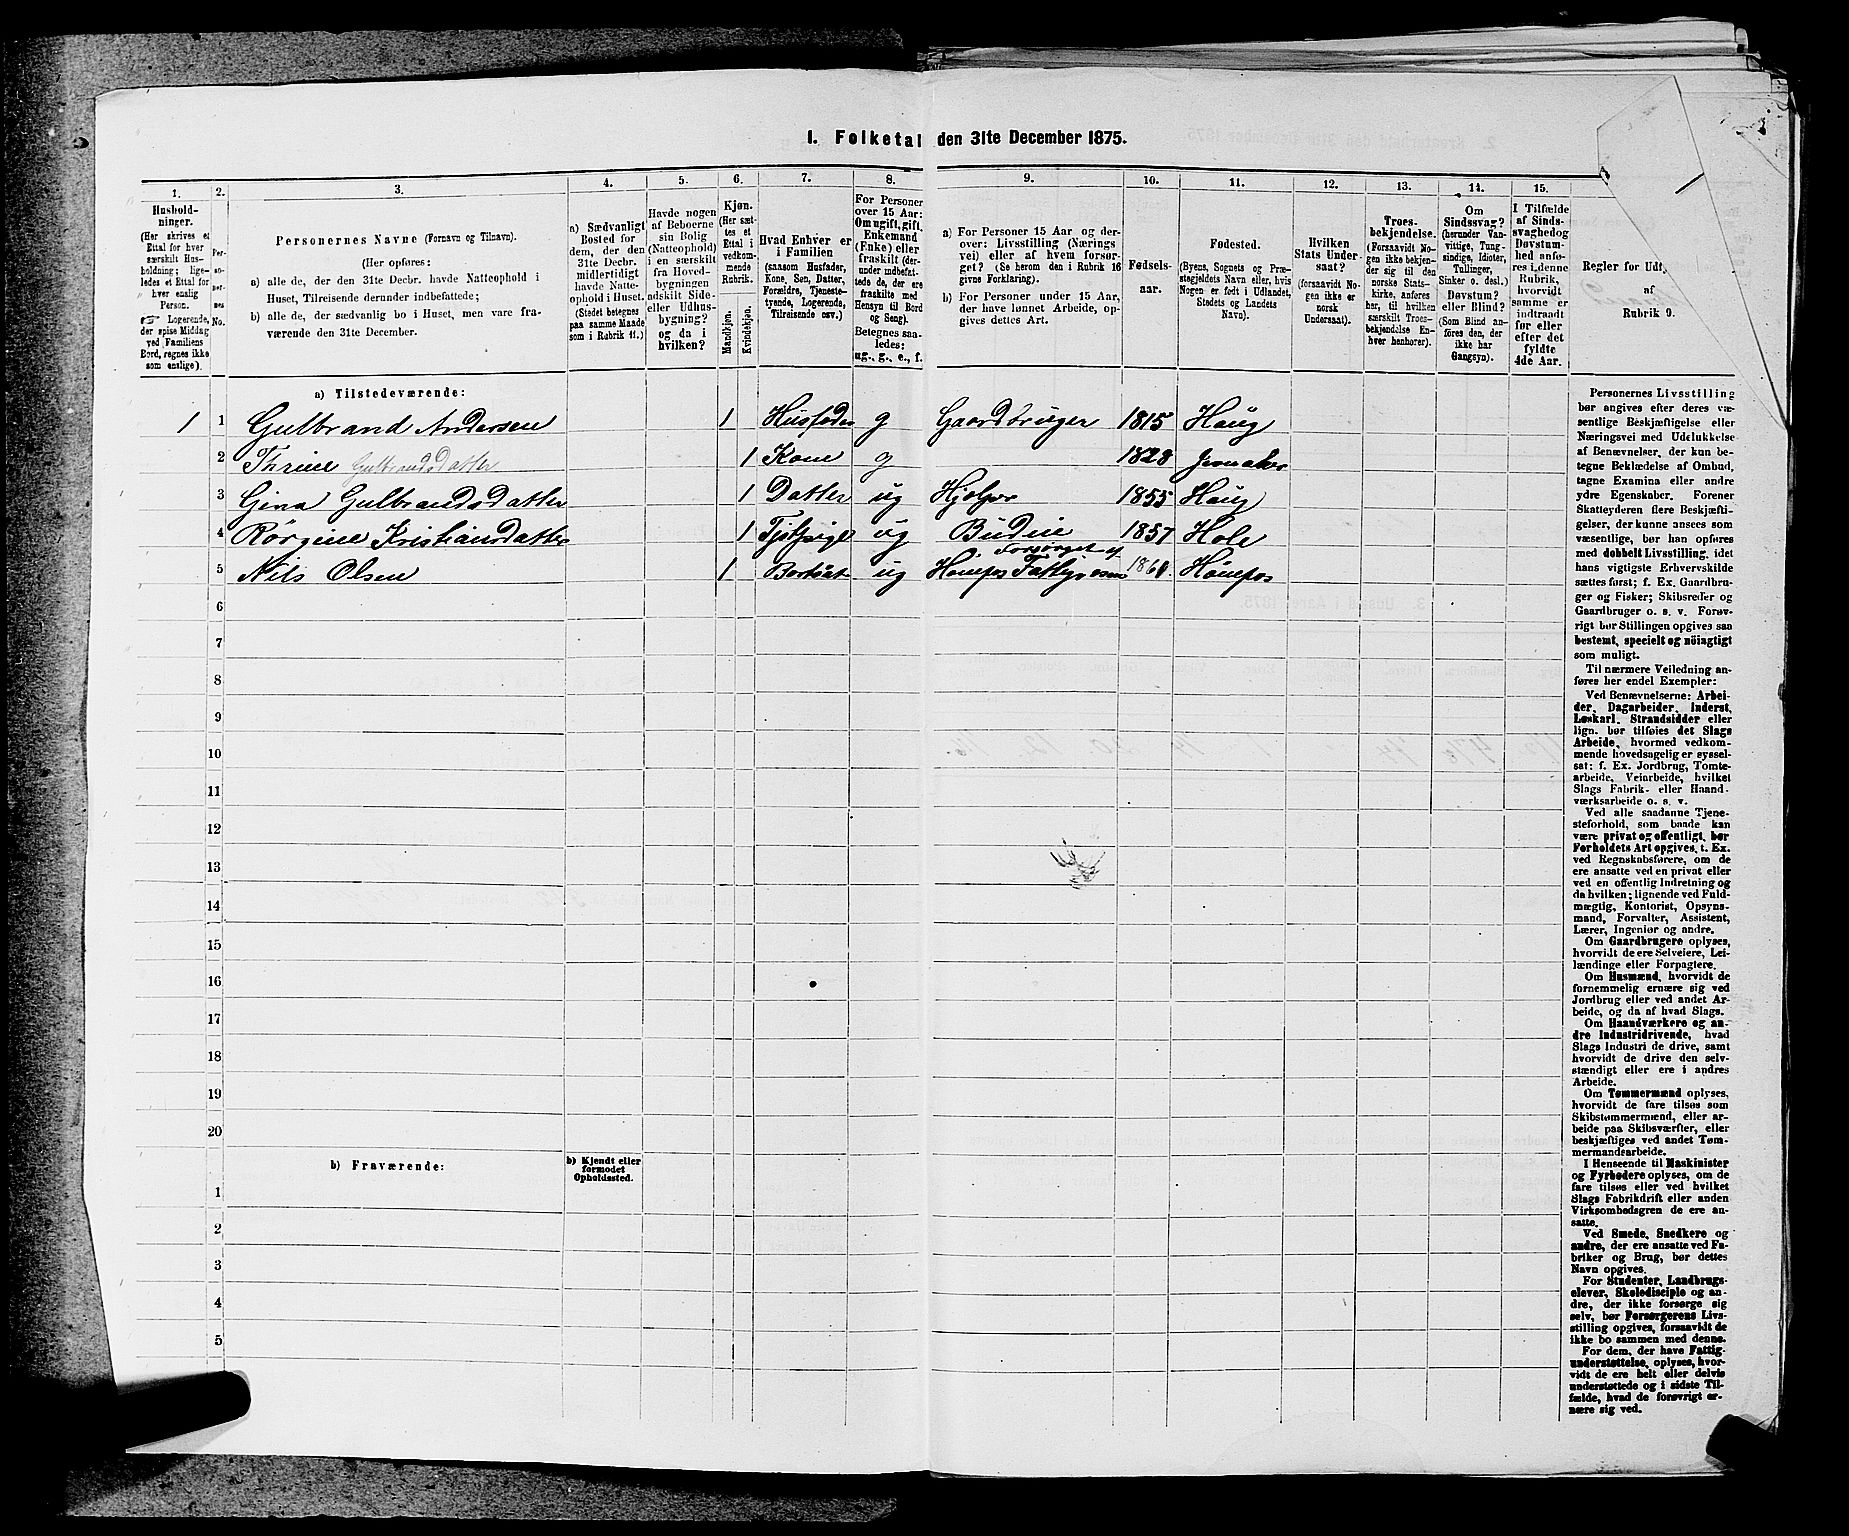 I. Folketal den 31te December 1875.
1. 2. 3. 4. 5. 6. 7. 8. 9. 10. 11. 12. 13. 14. 15.
Husholdninger.
(Her skrives et
Ettal for hver
særskilt Hus-
holdning; lige-
ledes et Ettal for
hver enslig
Person.
Logerende,
der spise Middag
ved Familiens
Bord, regnes ikke
som enslige).
Per-
so-
ner-
nes
No.
Personernes Navne (Fornavn og Tilnavn).
(Her opføres:
a) alle de, der den 31te Decbr. havde Natteophold i
Huset, Tilreisende derunder indbefattede;
b) alle de, der sædvanlig bo i Huset, men vare fra-
værende den 31te December.
a) Sædvanligt
Bosted for
dem, der den
31te Decbr.
midlertidigt
havde Natte-
ophold i Huset.
(Stedet betegnes
paa samme Maade
som i Rubrik 11.)
Havde nogen
af Beboerne
sin Bolig
(Natteophold)
i en særskilt
fra Hoved-
bygningen
adskilt Side-
eller Udhus-
bygning?
og da i
hvilken?
Kjøn.
(Her sæt-
tes et
Ettal i
vedkom-
mende
Rubrik.
Mandkjøn.
Kvindekjøn.
Hvad Enhver er
i Familien
(saasom Husfader,
Kone, Søn, Datter,
Forældre, Tjeneste-
tyende, Logerende,
Tilreisende osv.)
For Personer
over 15 Aar:
Om ugift, gift,
Enkemand
(Enke) eller
fraskilt (der-
under indbefat-
tede de, der ere
fraskilte med
Hensyn til Bord
og Seng).
Betegnes saa-
ledes:
ug., g., e., f.
a) For Personer 15 Aar og der-
over: Livsstilling (Nærings
vei) eller af hvem forsør-
get? (Se herom den i Rubrik 16
givne Forklaring).
b) For Personer under 15 Aar,
der have lønnet Arbeide, op-
gives dettes Art.
Fødsels-
aar.
Fødested.
(Byens, Sognets og Præ-
stegjeldets Navn eller, hvis
Nogen er født i Udlandet,
Stedets og Landets
Navn).
Hvilken
Stats Under-
saat?
(forsaavidt No-
gen ikke er
norsk
Undersaat).
Troes-
bekjendelse.
(Forsaavidt No-
gen ikke bekjen-
der sig til den
norske Stats-
kirke, anføres
her, til hvilken
særskilt Troes-
bekjendelse En-
hver henhører).
Om
Sindssvag?
(herunder Van-
vittige, Tung-
sindige, Idioter,
Tullinger,
Sinker o. desl.)
Døvstum?
eller Blind?
(Som Blind an-
føres den, der
ikke har
Gangsyn).
I Tilfælde
af Sinds-
svaghed og
Døvstum-
hed anfø-
res i denne
Rubrik,
hvorvidt
samme er
indtraadt
før eller
efter det
fyldte
4de Aar.
Regler for Udf
af
Rubrik 9.
a) Tilstedeværende:
1 1 Gulbrand Andersen 1 Husfader g Gaardbruger 1815 Haug
2 Thrine Gulbrandsdatter 1 Kone g 1828 Jevnaker
3 Gina Gulbrandsdatter 1 Datter ug Hjelper 1855 Haug
4 Rørgine Kristiansdatter 1 Tjstpige ug Budeie 1857 Hole
5 Nils Olsen 1 Bortsat ug Forsørget af Hønefos Fattigvæsen 1860. Hønefos
6
7
8
9
10
11
12
13
14
15
16
17
18
19
20
b) Fraværende:
b) Kjendt eller
formodet
Opholdssted.
1
2
3
4
5
Personernes Livsstilling
bør angives efter deres væ-
sentlige Beskjæftigelse eller
Næringsvei med Udelukkelse
af Benævnelser, der kun be-
tegne Beklædelse af Ombud,
tagne Examina eller andre
ydre Egenskaber. Forener
Skatteyderen flere Beskjæfti-
gelser, der kunne ansees som
væsentlige, bør han opføres
med dobbelt Livsstilling, idet
hans vigtigste Erhvervskilde
sættes først; f. Ex. Gaardbru-
ger og Fisker; Skibsreder og
Gaardbruger o. s. v. Forøv-
rigt bør Stillingen opgives saa
bestemt, specielt og nøiagtigt
som muligt.
Til nærmere Veiledning an-
føres her endel Exempler:
Ved Benævnelserne: Arbei-
der, Dagarbeider, Inderst,
Løskarl, Strandsidder eller
lign. bør tilføies det Slags
Arbeide, hvormed vedkom-
mende hovedsagelig er syssel-
sat: f. Ex. Jordbrug, Tomte-
arbeide, Veiarbeide, hvilket
Slags Fabrik- eller Haand-
værksarbeide o. s. v.
Ved alle saadanne Tjene-
steforhold, som baade kan
være privat og offentligt, bør
Forholdets Art opgives, t. Ex.
ved Regnskabsførere, om de
ere ansatte ved en privat eller
ved en offentlig Indretning og
da hvilken; lignende ved Fuld-
mægtig, Kontorist, Opsyns-
mand, Forvalter, Assistent,
Lærer, Ingeniør og andre.
Om Gaardbrugere oplyses,
hvorvidt de ere Selveiere, Lei-
lændinge eller Forpagtere.
Om Husmænd, hvorvidt de
fornemmelig ernære sig ved
Jordbrug eller ved andet Ar-
beide, og da af hvad Slags.
Om Haandværkere og an-
dre Industridrivende, hvad
Slags Industri de drive, samt
hvorvidt de drive den selv-
stændigt eller ere i andres
Arbeide.
Om Tømmermænd oplyses,
hvorvidt de fare tilsøs som
Skibstømmermænd, eller ar-
beide paa Skibsværfter, eller
beskjæftiges ved andet Tøm-
mermandsarbeide.
I Henseende til Maskinister
og Fyrbødere oplyses, om de
fare tilsøs eller ved hvilket
Slags Fabrikdrift eller anden
Virksomhedsgren de ere an-
satte.
Ved Smede, Snedkere og
andre, der ere ansatte ved Fa-
briker og Brug, bør dettes
Navn opgives.
For Studenter, Landbrugs-
elever, Skoledisciple og an-
dre, der ikke forsørge sig
selv, bør Forsørgerens Livs-
stilling opgives, forsaavidt de
ikke bo sammen med denne.
For dem, der have Fattig-
understøttelse, oplyses, hvor-
vidt de ere helt eller delvis
understøttede og i sidste Til-
fælde, hvad de forøvrigt er-
nære sig ved.